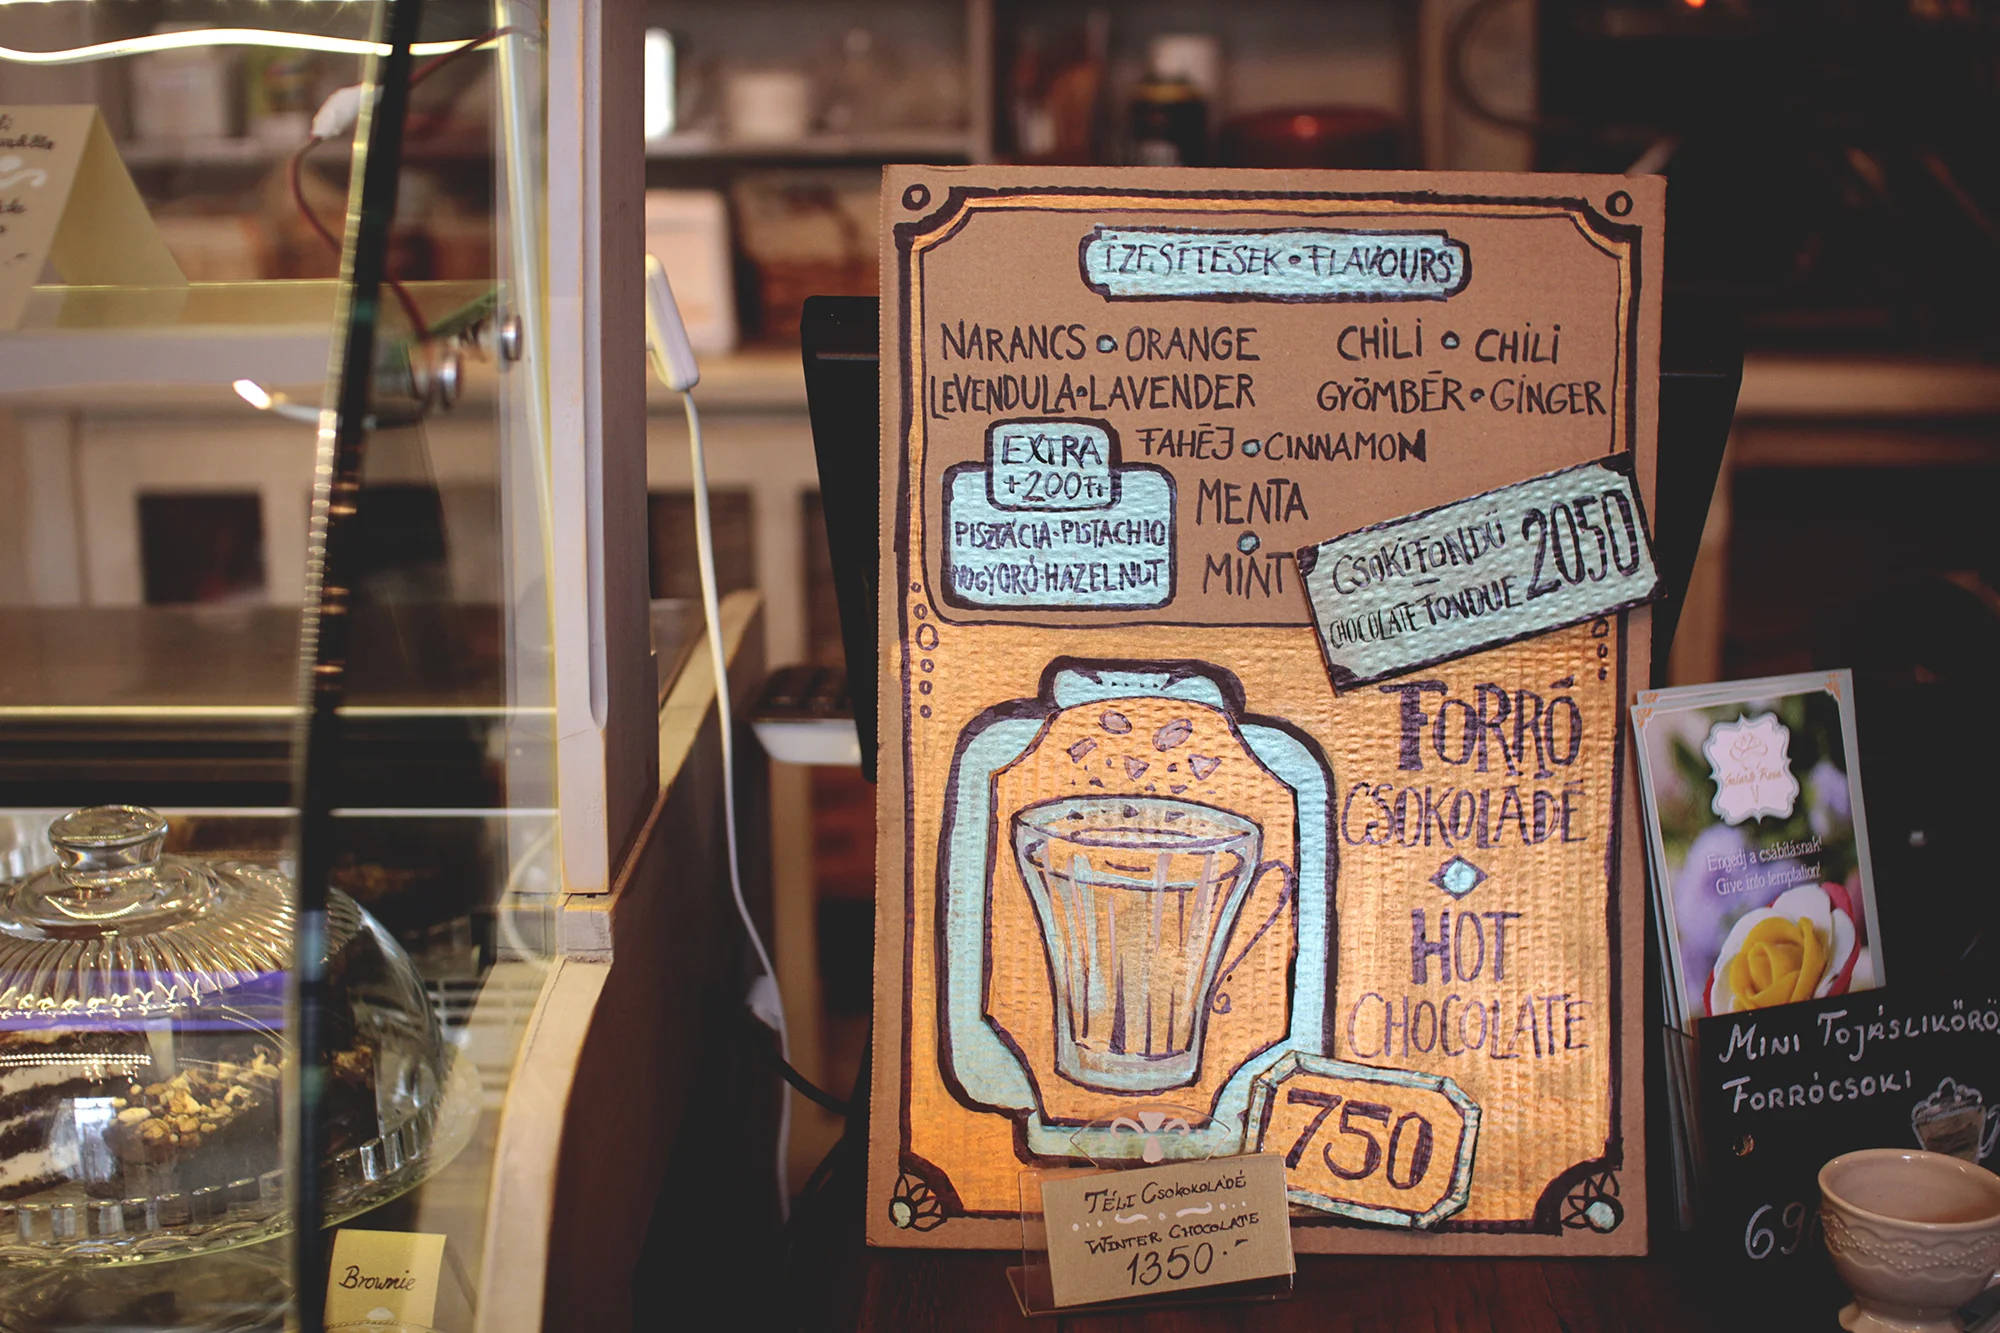 ÍZESÍTÉSEK • FLAVOURS
NARANCS • ORANGE
CHILI • CHILI
LEVENDULA • LAVENDER
GYÖMBÉR • GINGER
FAHÉJ • CINNAMON
MENTA
•
MINT
EXTRA
+200Ft
PISZTÁCIA • PISTACHIO
MOGYORÓ • HAZELNUT
CSOKIFONDÜ
CHOCOLATE FONDUE
2050
FORRÓ
CSOKOLÁDÉ
HOT
CHOCOLATE
750
TÉLI CSOKOKOLÁDÉ
WINTER CHOCOLATE
1350.-
Brownie
Gelarto Rosa
Engedj a csábításnak!
Give into temptation!
MINI TOJÁSLIKŐRÖ
FORRÓCSOKI